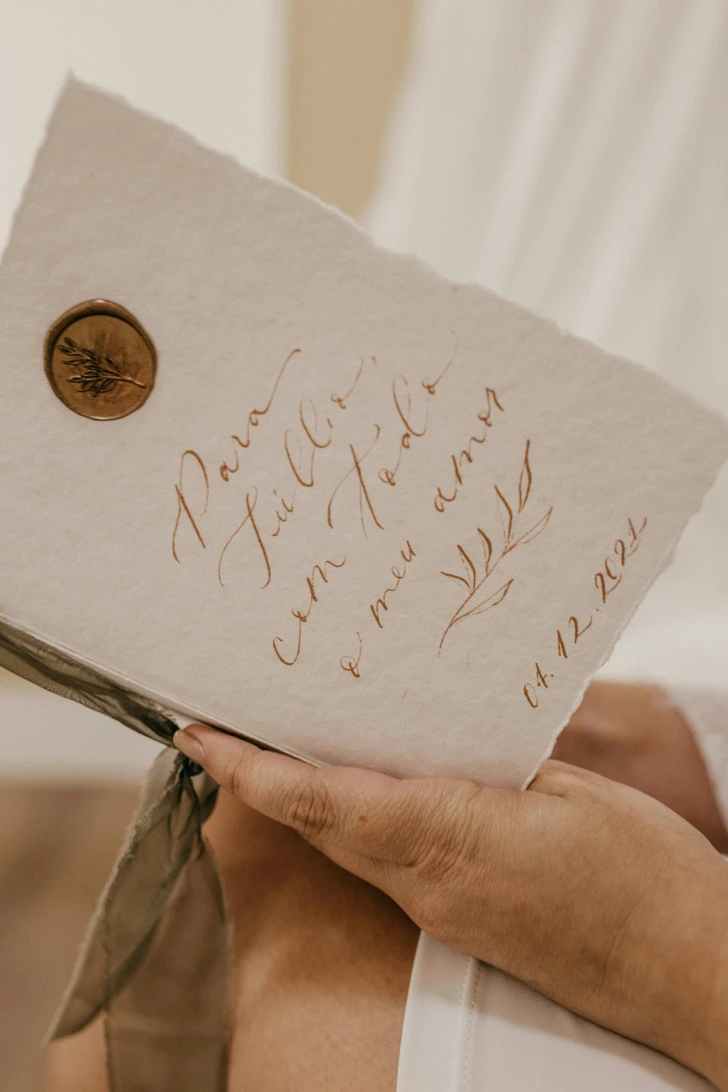 Para
com todo
o meu amor
01.12.2021